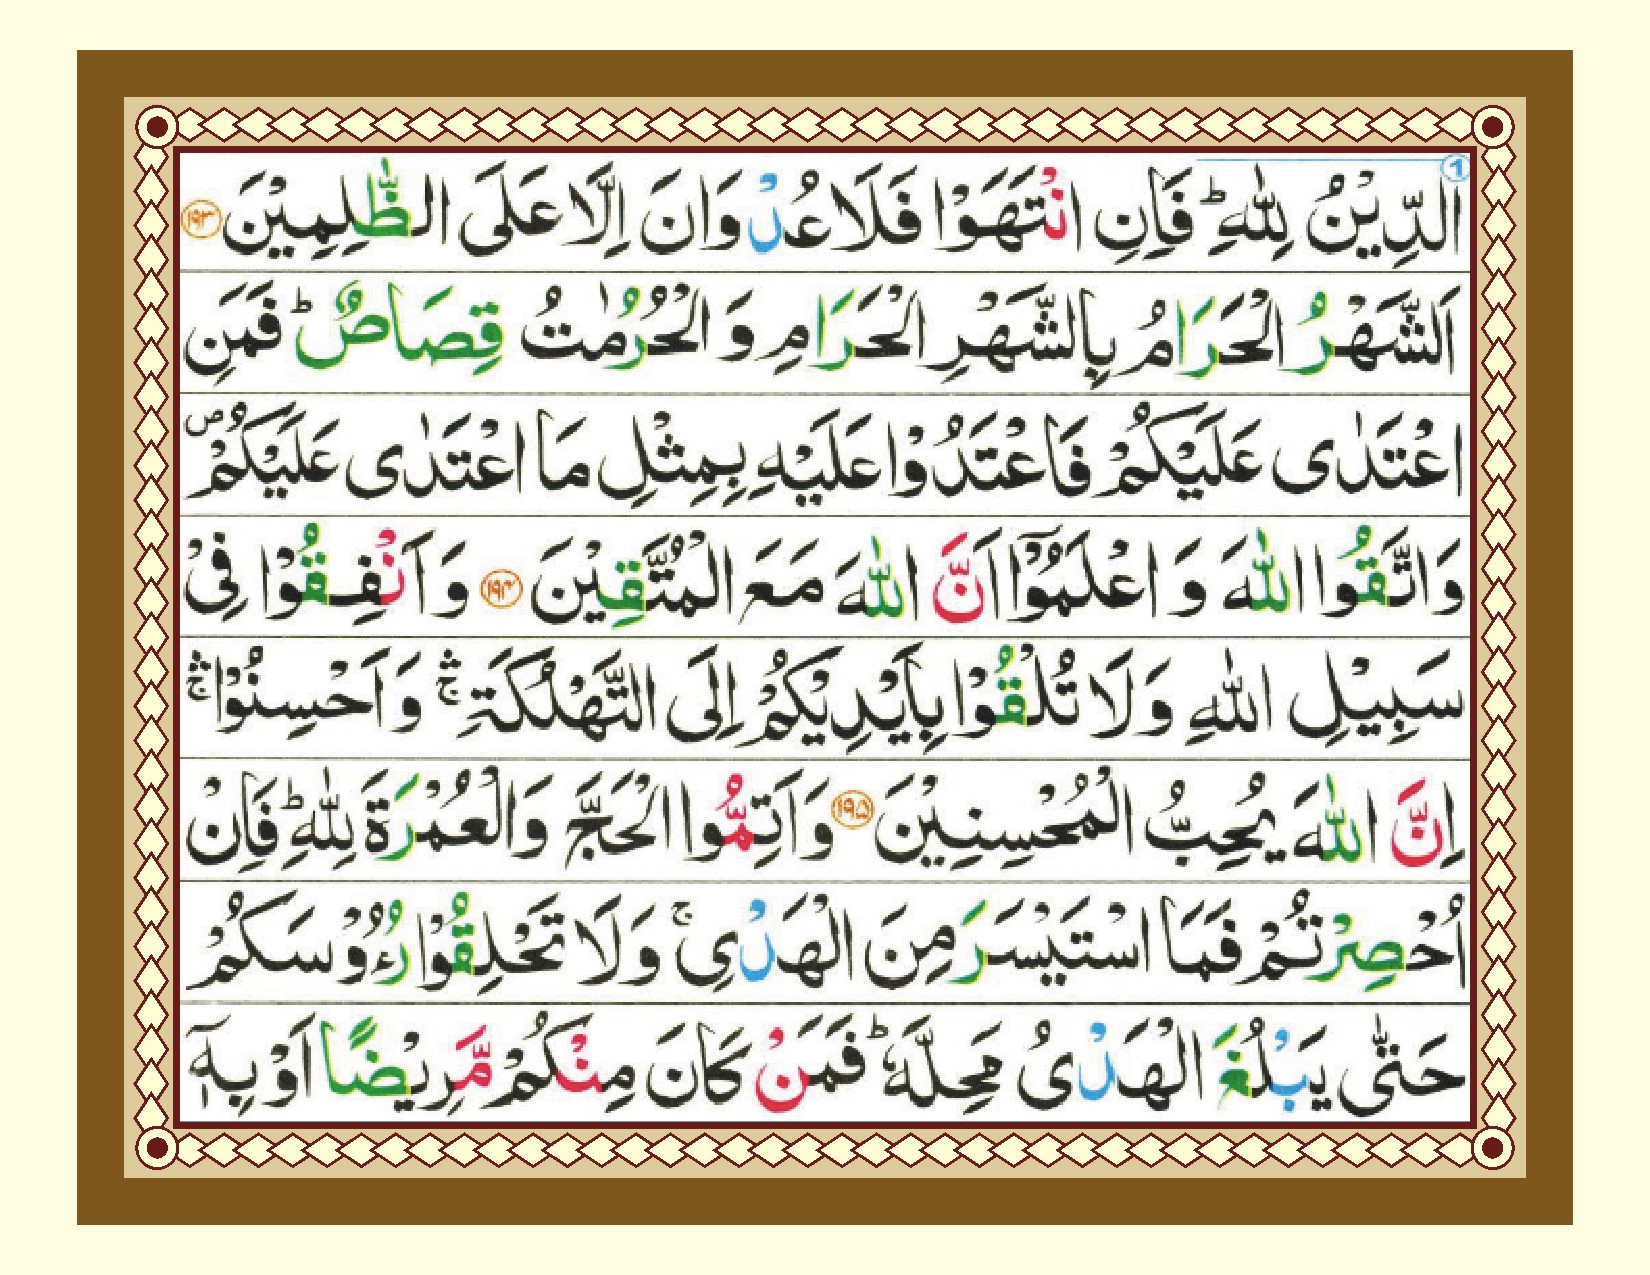 الدِّيْنُ لِلّٰهِ ؕ فَاِنِ انْتَهَوْا فَلَا عُدْوَانَ اِلَّا عَلَى الظّٰلِمِيْنَ ۱۹۳
اَلشَّهْرُ الْحَرَامُ بِالشَّهْرِ الْحَرَامِ وَ الْحُرُمٰتُ قِصَاصٌ ؕ فَمَنِ
اعْتَدٰى عَلَيْكُمْ فَاعْتَدُوْا عَلَيْهِ بِمِثْلِ مَا اعْتَدٰى عَلَيْكُمْ ۪
وَاتَّقُوا اللّٰهَ وَ اعْلَمُوْۤا اَنَّ اللّٰهَ مَعَ الْمُتَّقِيْنَ ۱۹۴ وَ اَنْفِقُوْا فِىْ
سَبِيْلِ اللّٰهِ وَلَا تُلْقُوْا بِاَيْدِيْكُمْ اِلَى التَّهْلُكَةِ ۛۚ وَ اَحْسِنُوْا ۛۚ
اِنَّ اللّٰهَ يُحِبُّ الْمُحْسِنِيْنَ ۱۹۵ وَ اَتِمُّوا الْحَجَّ وَالْعُمْرَةَ لِلّٰهِ ؕ فَاِنْ
اُحْصِرْتُمْ فَمَا اسْتَيْسَرَ مِنَ الْهَدْىِ ۚ وَلَا تَحْلِقُوْا رُءُوْسَكُمْ
حَتّٰى يَبْلُغَ الْهَدْىُ مَحِلَّهٗ ؕ فَمَنْ كَانَ مِنْكُمْ مَّرِيْضًا اَوْ بِهٖۤ